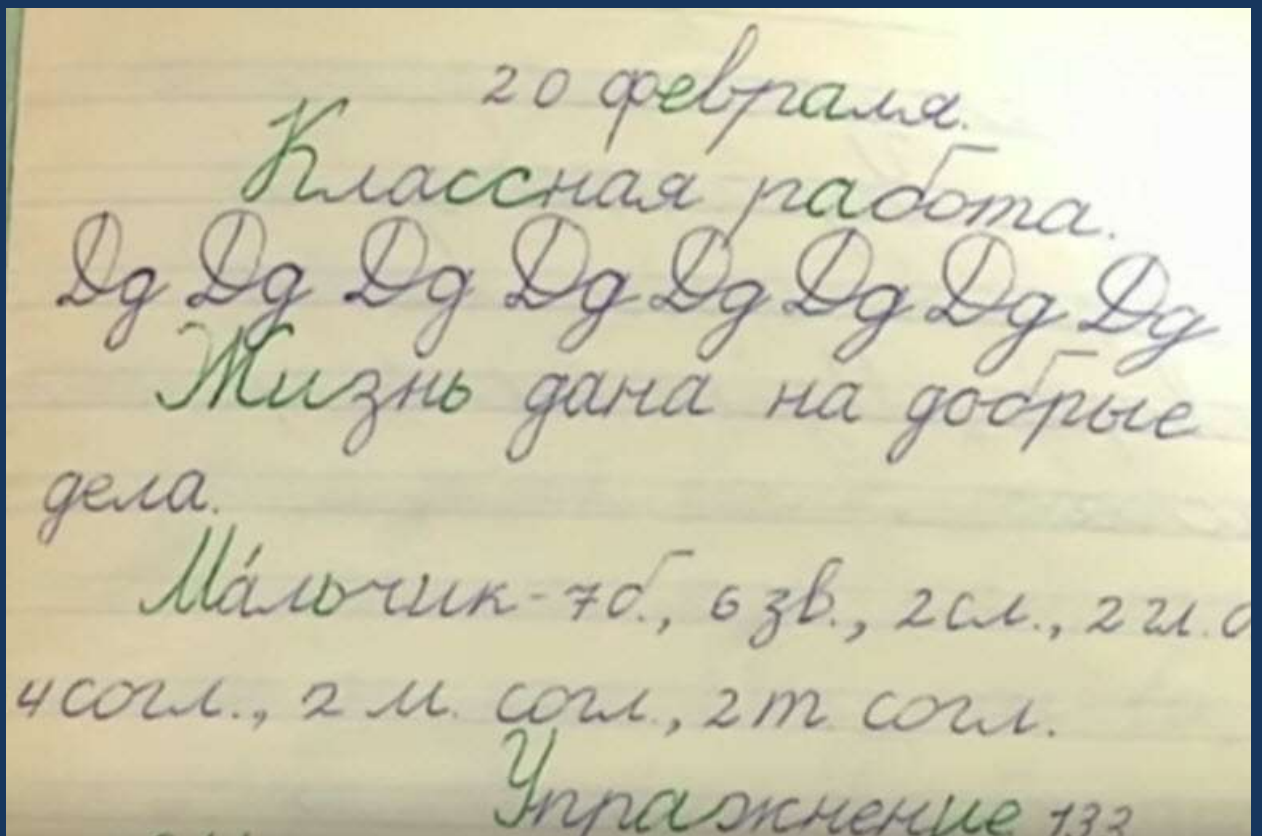 20 февраля.
Классная работа.
Дд Дд Дд Дд Дд Дд Дд Дд
Жизнь дана на добрые
дела.
Ма́льчик - 7б., 6 зв., 2 сл., 2 гл.
4 согл., 2 м. согл., 2 т. согл.
Упражнение 132